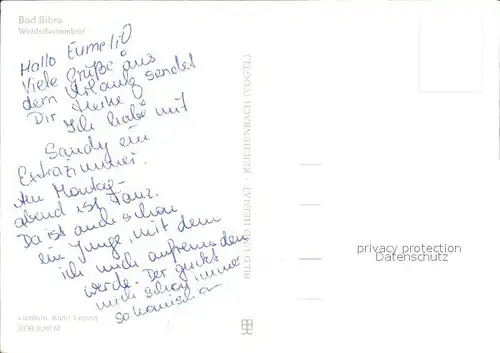 Bad Bibra
Waldschwimmbad
Hallo Eumeli!
Viele Grüße aus
dem Urlaub sendet
Dir Heike!
Ich habe mit
Sandy ein
Extrazimmer.
Am Montag-
abend ist Tanz.
Da ist auch schon
ein Junge, mit dem
ich mich anfreunden
werde. Der guckt
mich schon immer
so komisch an
BILD UND HEIMAT · REICHENBACH (VOGTL)
privacy protection
Datenschutz
Farbfoto: Kühn, Leipzig
DDR 0,20 M